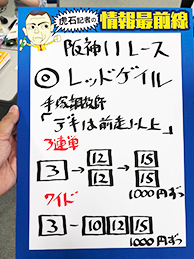 虎石記者の
情報最前線
阪神11レース
◎レッドゲイル
手塚調教師
「デキは前走以上」
3連単
3→12→15
12 15
1000円ずつ
ワイド
3-10 12 15
1000円ずつ